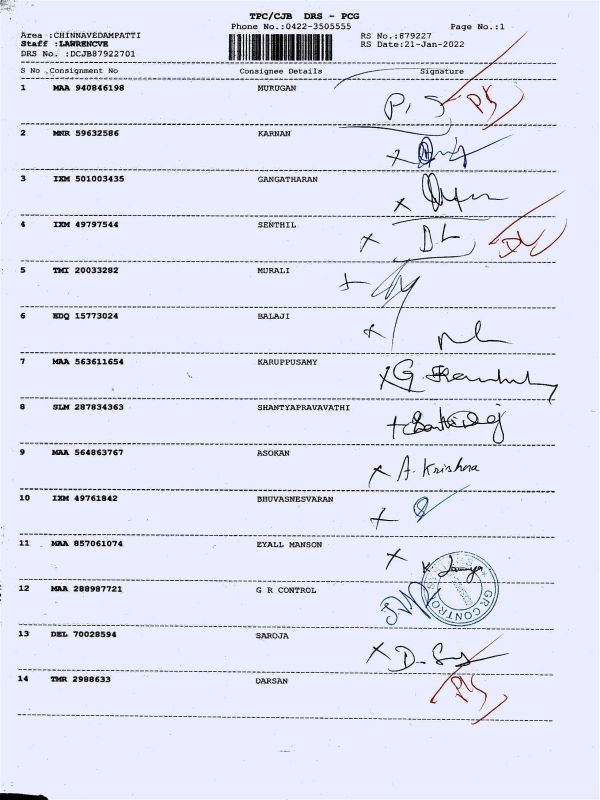 TPC/CJB DRS - PCG
Phone No.:0422-3505555 Page No.:1
Area :CHINNAVEDAMPATTI RS No.:879227
Staff :LAWRENCVE RS Date:21-Jan-2022
DRS No. :DCJB87922701
S No Consignment No Consignee Details Signature
1 MAA 940846198 MURUGAN
2 MNR 59632586 KARNAN
3 IXM 501003435 GANGATHARAN
4 IXM 49797544 SENTHIL D.L
5 TMI 20033282 MURALI
6 EDQ 15773024 BALAJI
7 MAA 563611654 KARUPPUSAMY
8 SLM 287834363 SHANTYAPRAVAVATHI
9 MAA 564863767 ASOKAN A. Krishna
10 IXM 49761842 BHUVASNESVARAN
11 MAA 857061074 EYALL MANSON
12 MAA 288987721 G R CONTROL GR CONTRO
13 DEL 70028594 SAROJA
14 TMR 2988633 DARSAN